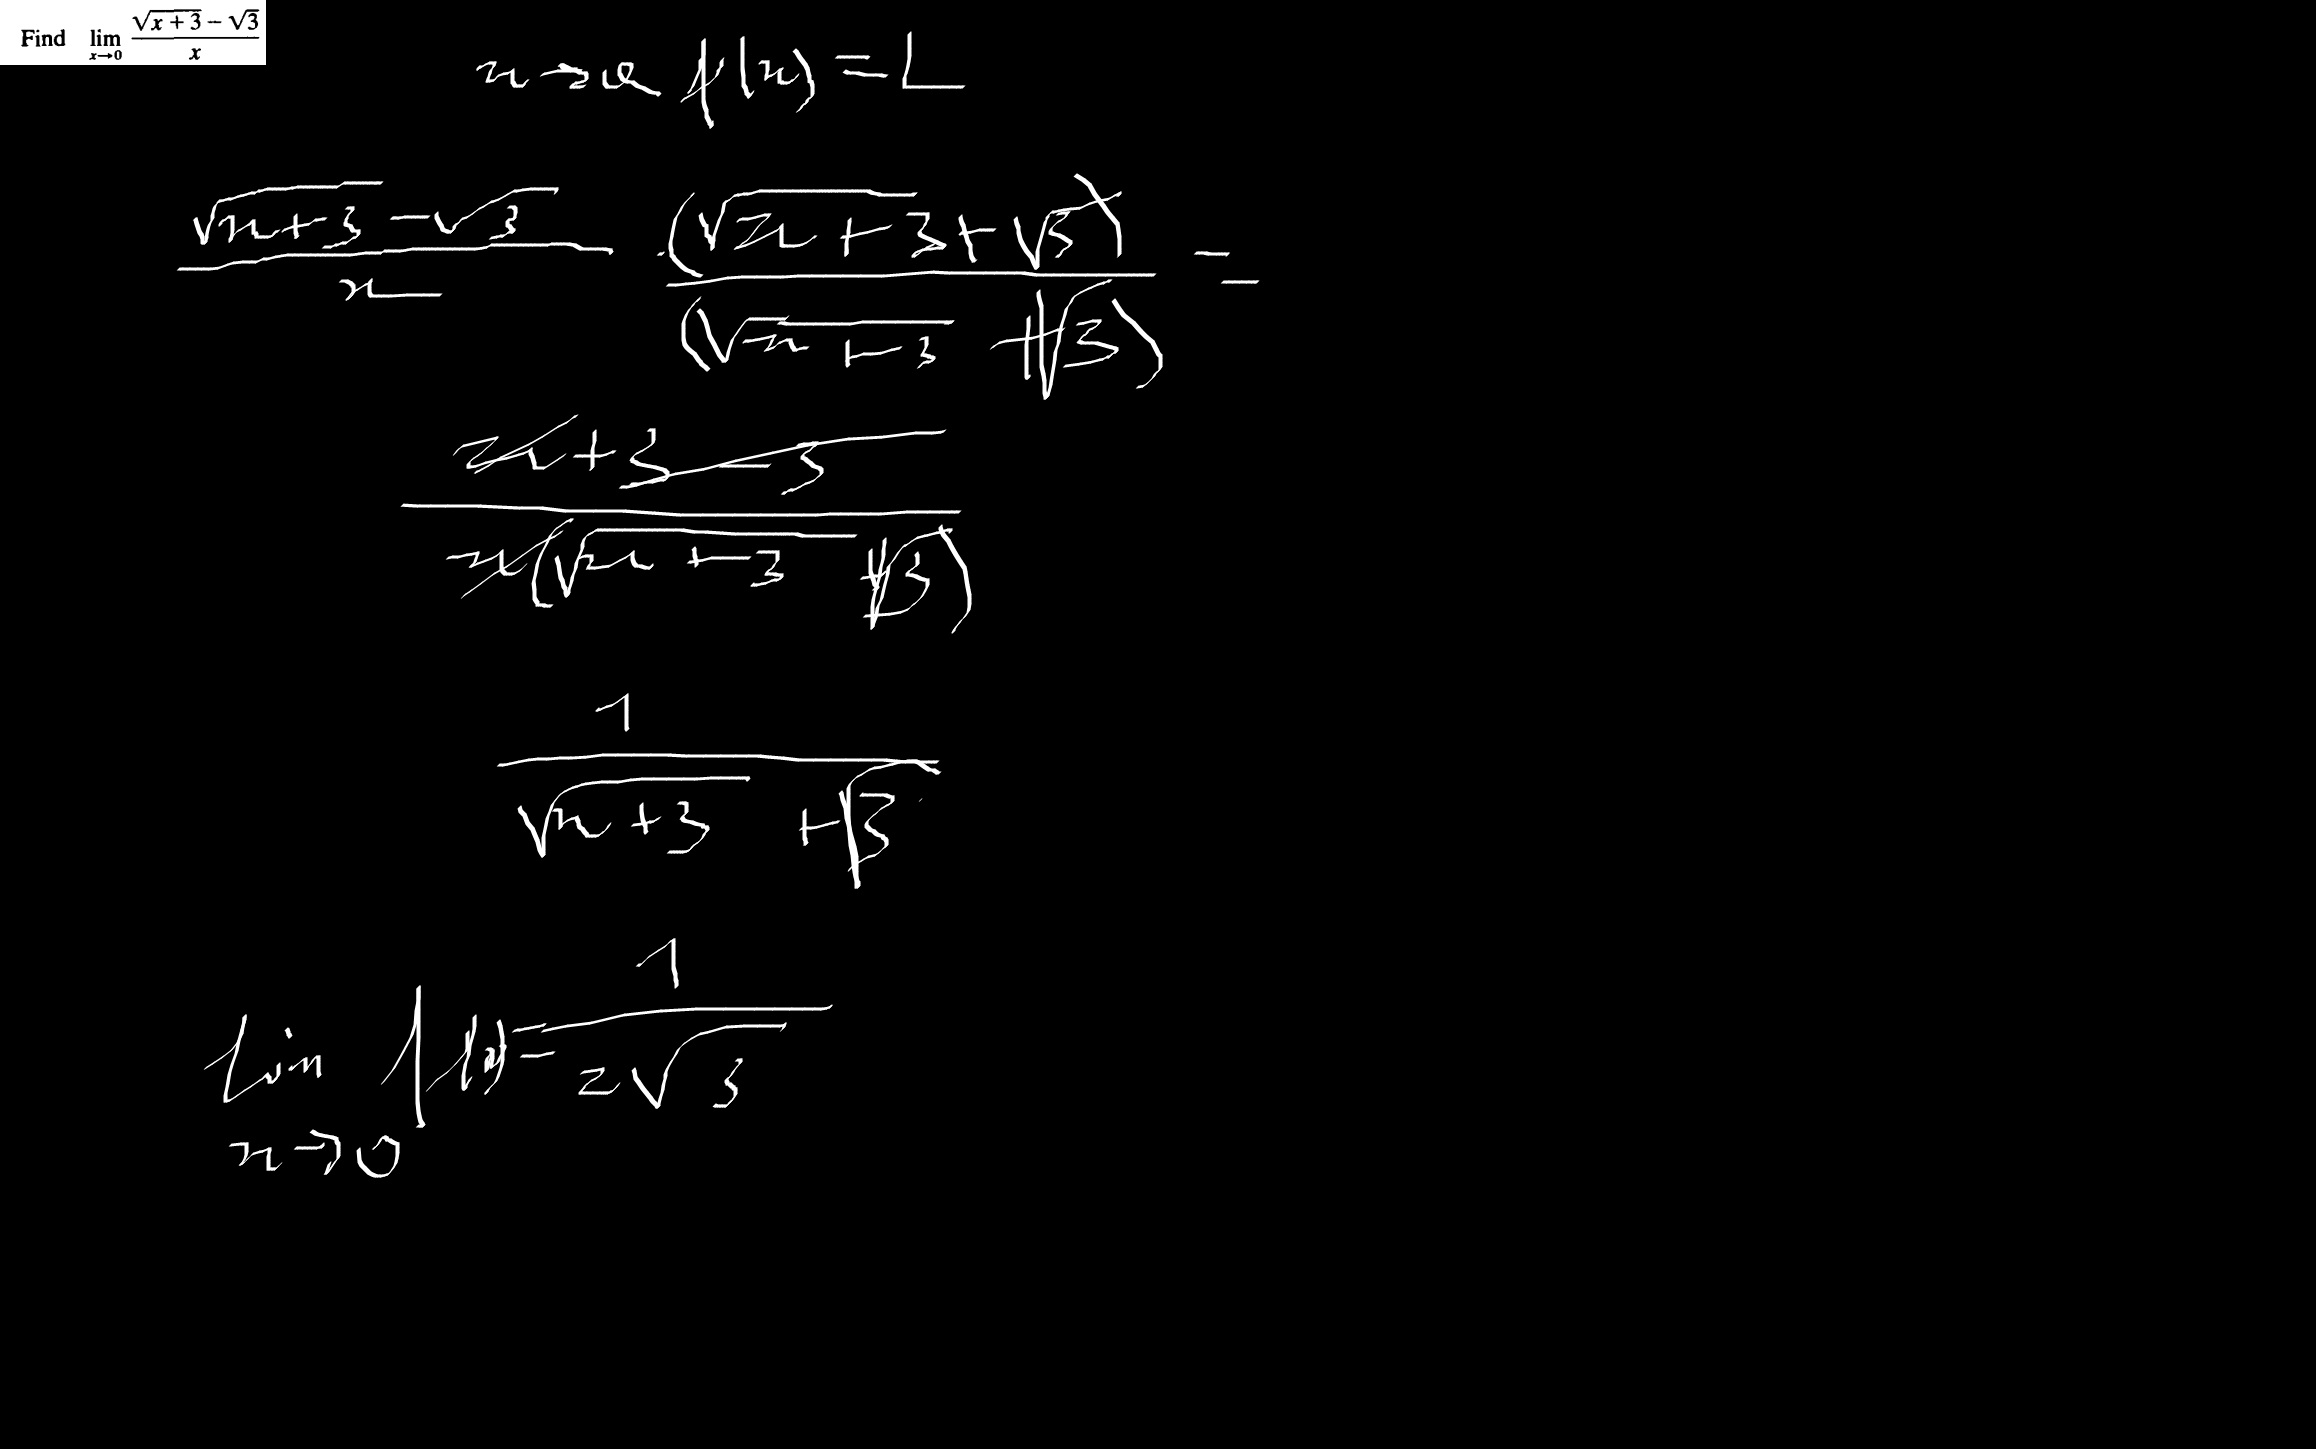 Find lim x→0 (√(x+3) − √3)/x
x→a f(x) = L
(√(x+3) − √3)/x · (√(x+3) + √3)/(√(x+3) + √3) =
(x+3−3)/(x(√(x+3) + √3))
1/(√(x+3) + √3)
lim x→0 f(x) = 1/(2√3)